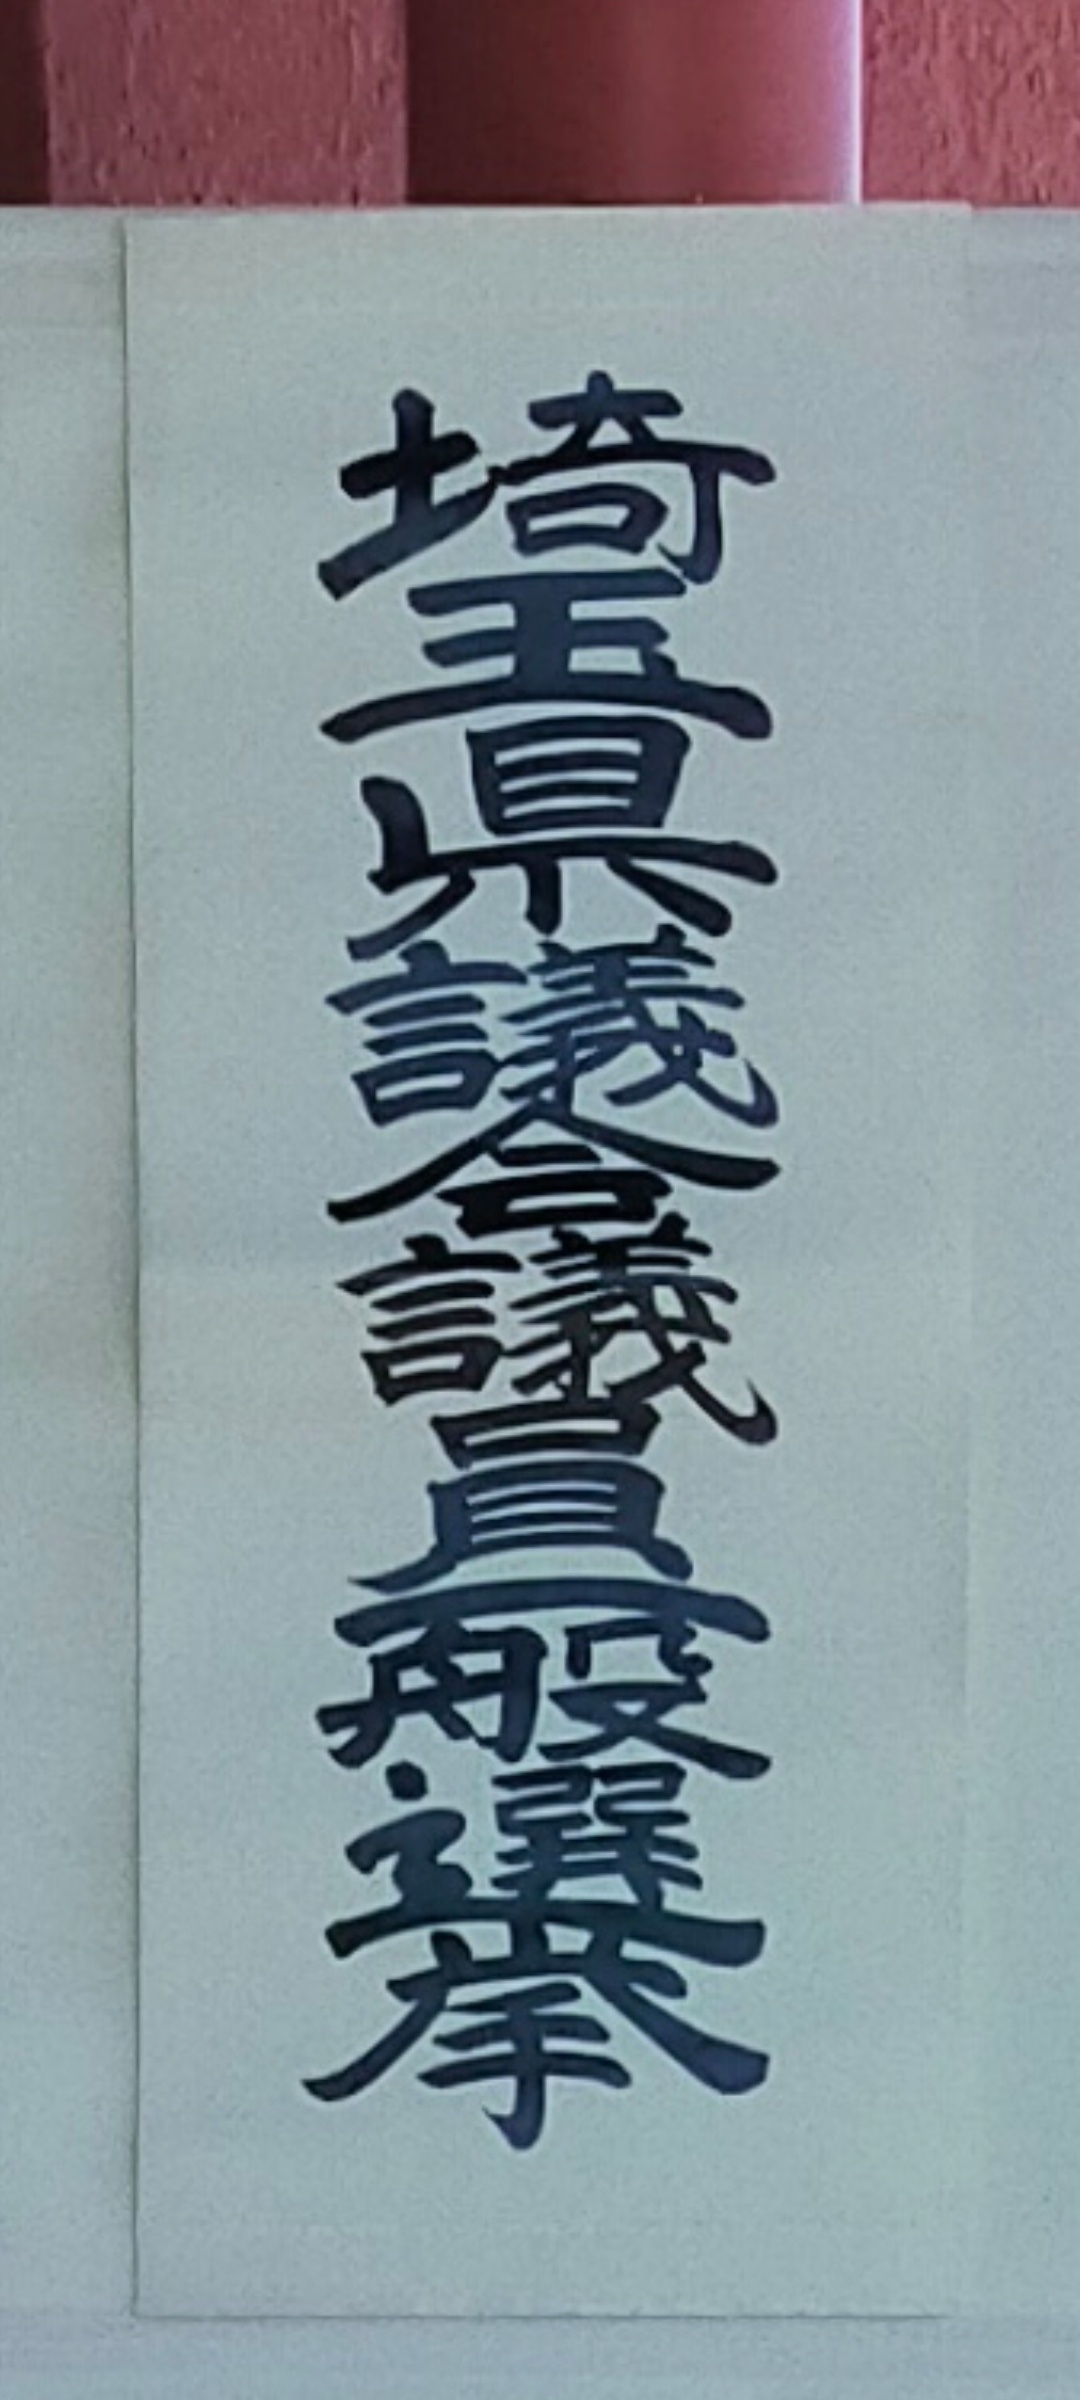 埼玉県議会議員一般選挙